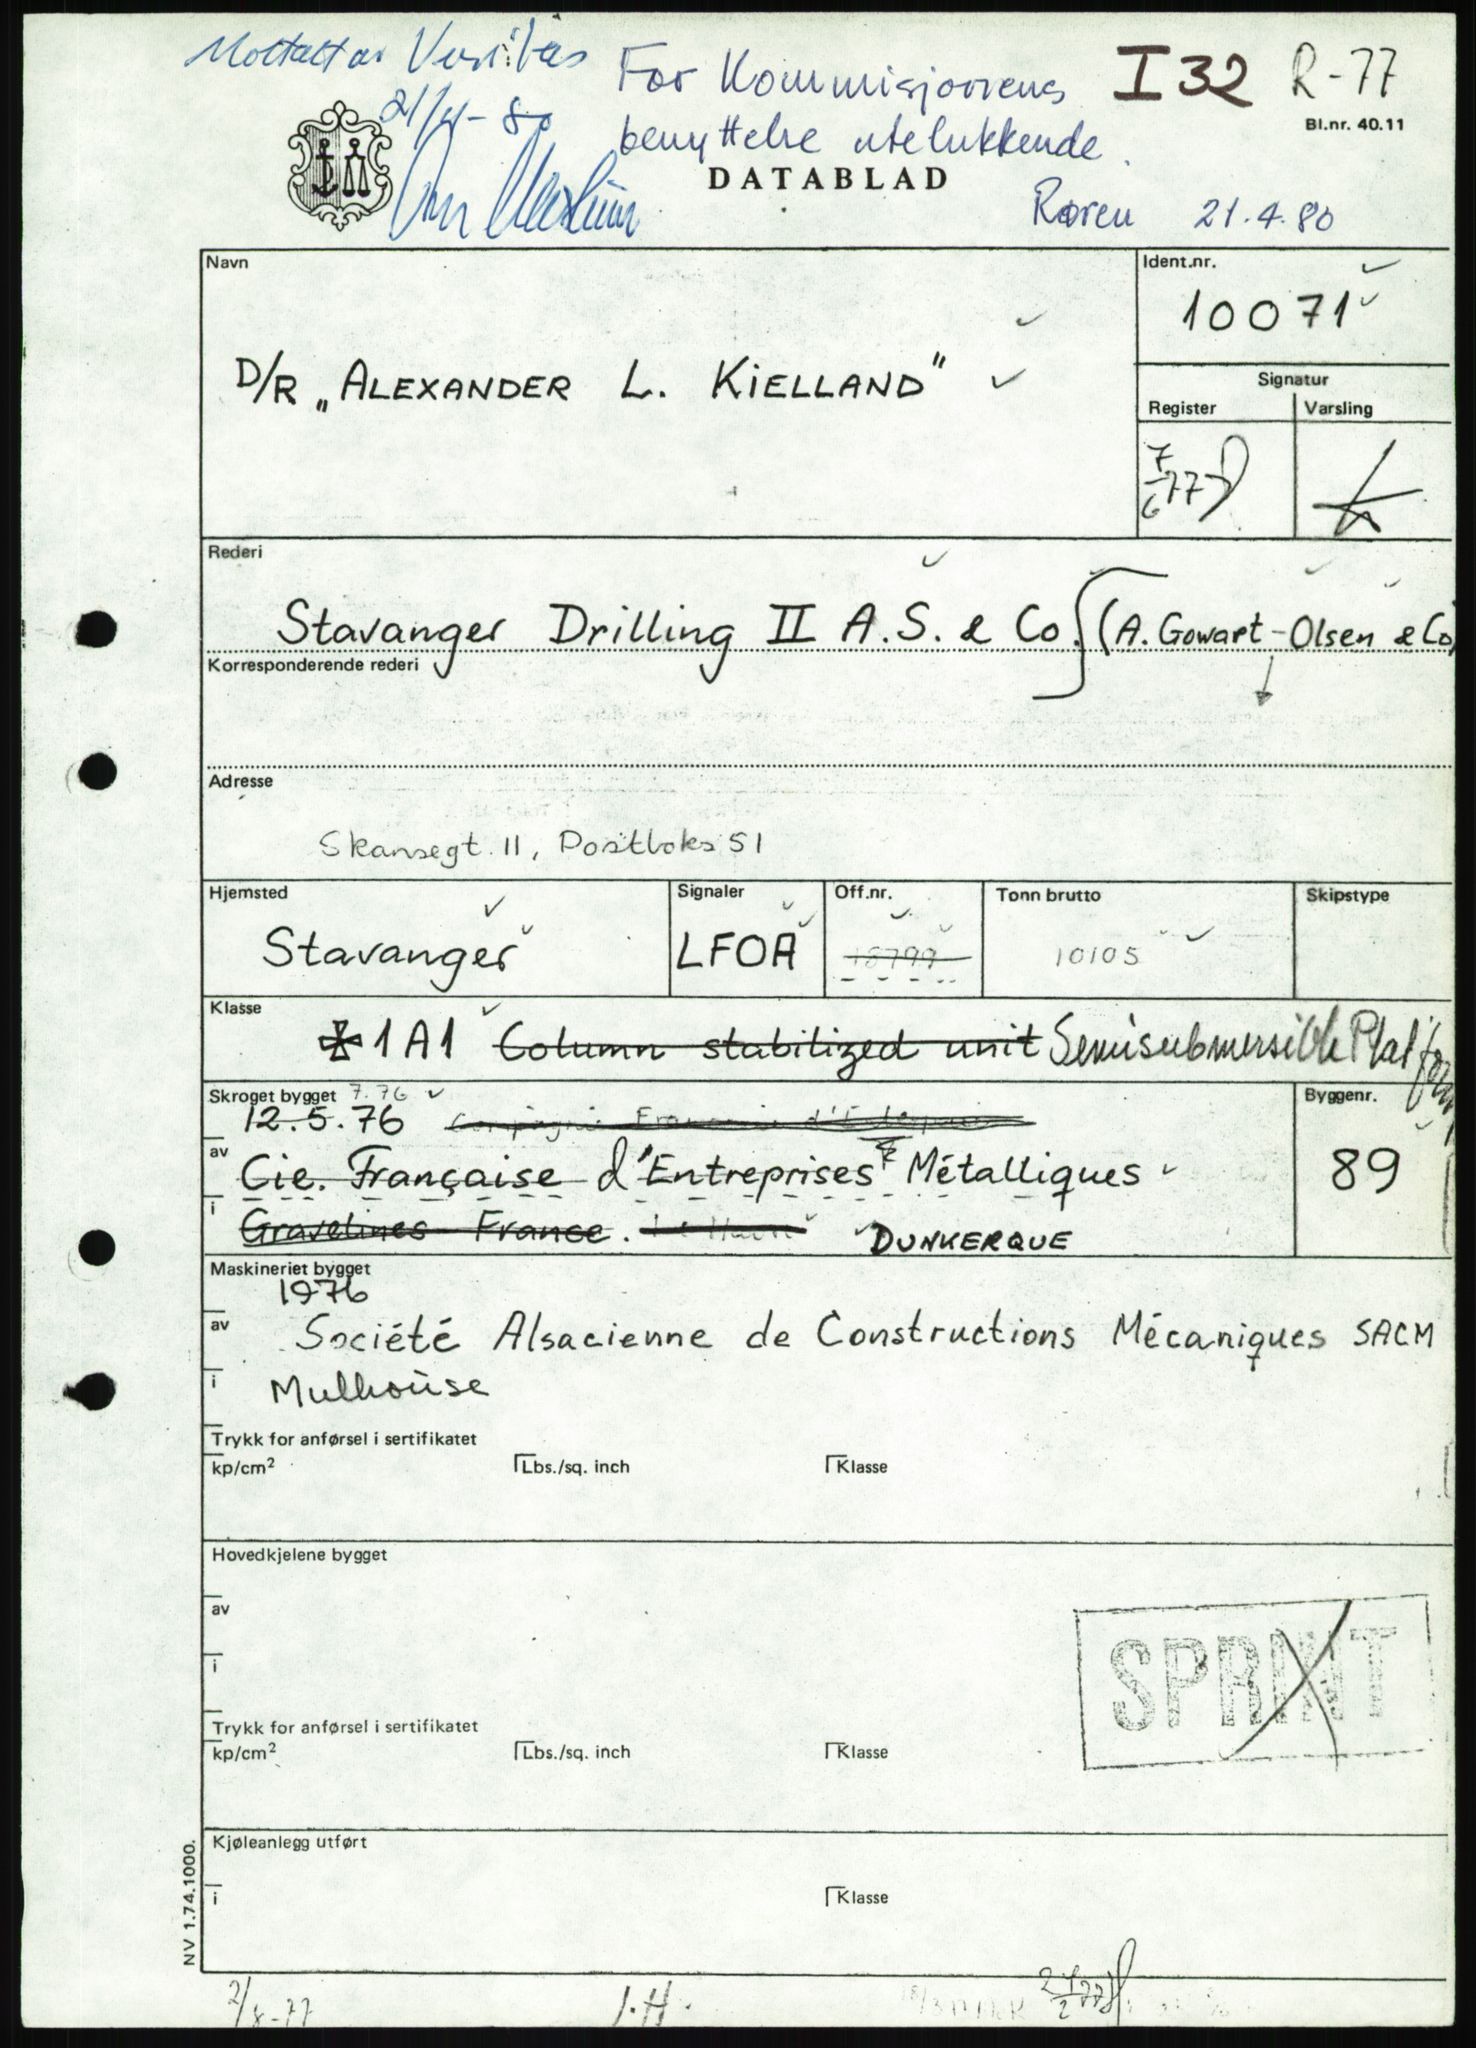 Mottatt av Veritas
21/4-80
For Kommisjonens
benyttelse utelukkende.
I 32 R-77
Bl.nr. 40.11
DATABLAD
Røren 21.4.80
Navn
D/R „ALEXANDER L. KIELLAND"
Ident.nr.
10071
Signatur
Register Varsling
7/6 77
Rederi
Stavanger Drilling II A.S. & Co. (A. Gowart-Olsen & Co)
Korresponderende rederi
Adresse
Skansegt. 11, Postboks 51
Hjemsted Signaler Off.nr. Tonn brutto Skipstype
Stavanger LFOA 10105
Klasse
✠1A1 Column stabilized unit Semisubmersible Platform
Skroget bygget 7.76
12.5.76 Compagnie Francaise d'Entreprises
Byggenr.
89
av
Cie. Française d'Entreprises Métalliques
i
Gravelines France. Le Havre DUNKERQUE
Maskineriet bygget
1976
av
Société Alsacienne de Constructions Mécaniques SACM
i
Mulhouse
Trykk for anførsel i sertifikatet
kp/cm² Lbs./sq. inch Klasse
Hovedkjelene bygget
av
i
SPRINT
Trykk for anførsel i sertifikatet
kp/cm² Lbs./sq. inch Klasse
Kjøleanlegg utført
i Klasse
NV 1.74.1000.
2/8-77 I.H.